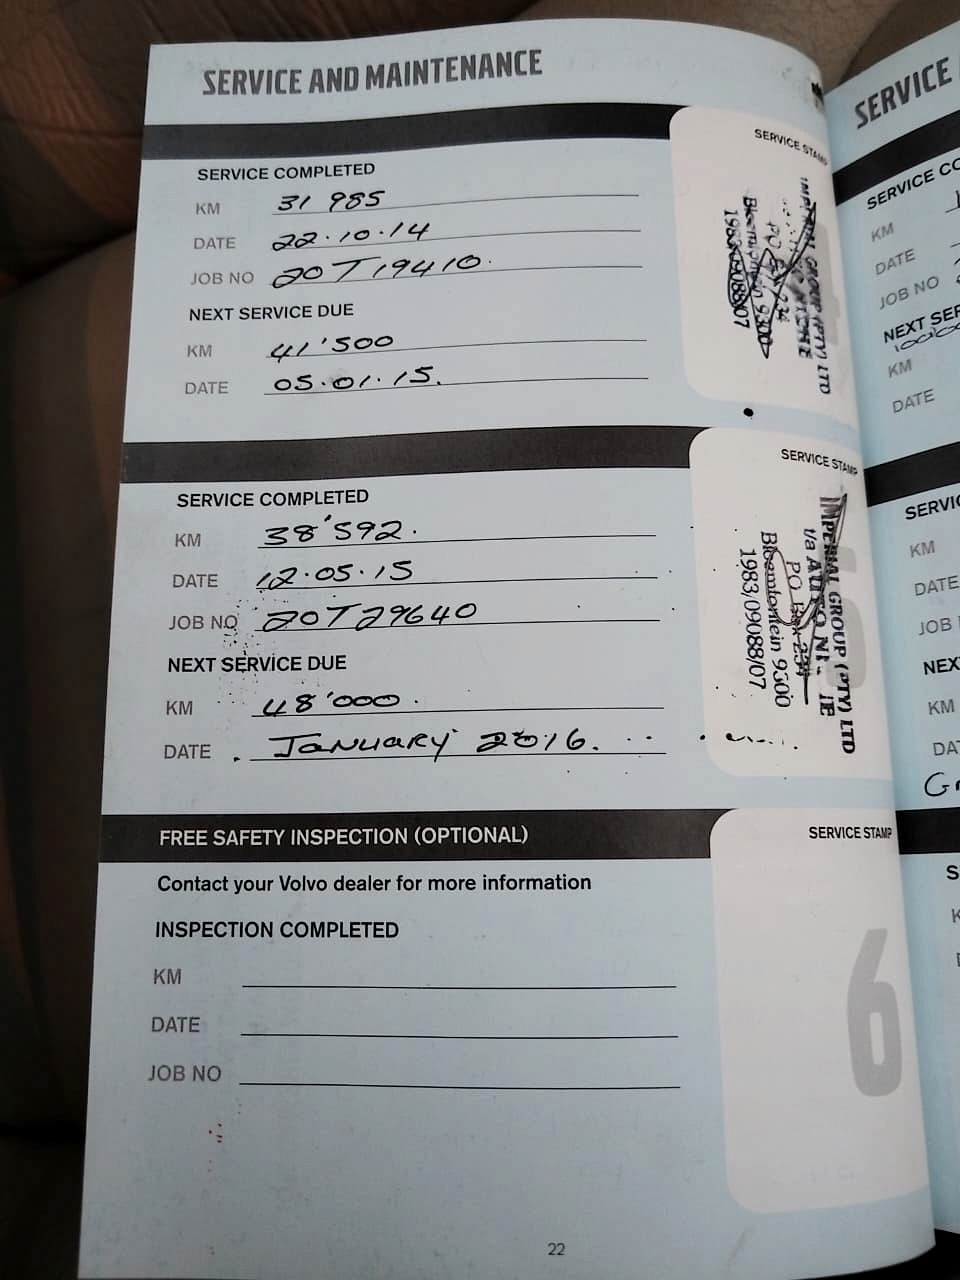 SERVICE AND MAINTENANCE
SERVICE STAMP
SERVICE COMPLETED
KM 31 985
DATE 22.10.14
JOB NO 20T19410.
NEXT SERVICE DUE
KM 41'500
DATE 05.01.15.
IMPERIAL GROUP (PTY) LTD
PO
Bloemfontein 9300
1983/09088/07
SERVICE STAMP
SERVICE COMPLETED
KM 38'592.
DATE 12.05.15
JOB NO 20T29640
NEXT SERVICE DUE
KM 48'000.
DATE January 2016.
5
IMPERIAL GROUP (PTY) LTD
t/a AUTO
PO Box 234
Bloemfontein 9300
1983/09088/07
FREE SAFETY INSPECTION (OPTIONAL)
SERVICE STAMP
Contact your Volvo dealer for more information
INSPECTION COMPLETED
KM
DATE
JOB NO
6
22
SERVICE
SERVICE CO
KM
DATE
JOB NO
NEXT SER
KM
DATE
SERVIC
KM
DATE
JOB
NEX
KM
DA
S
K